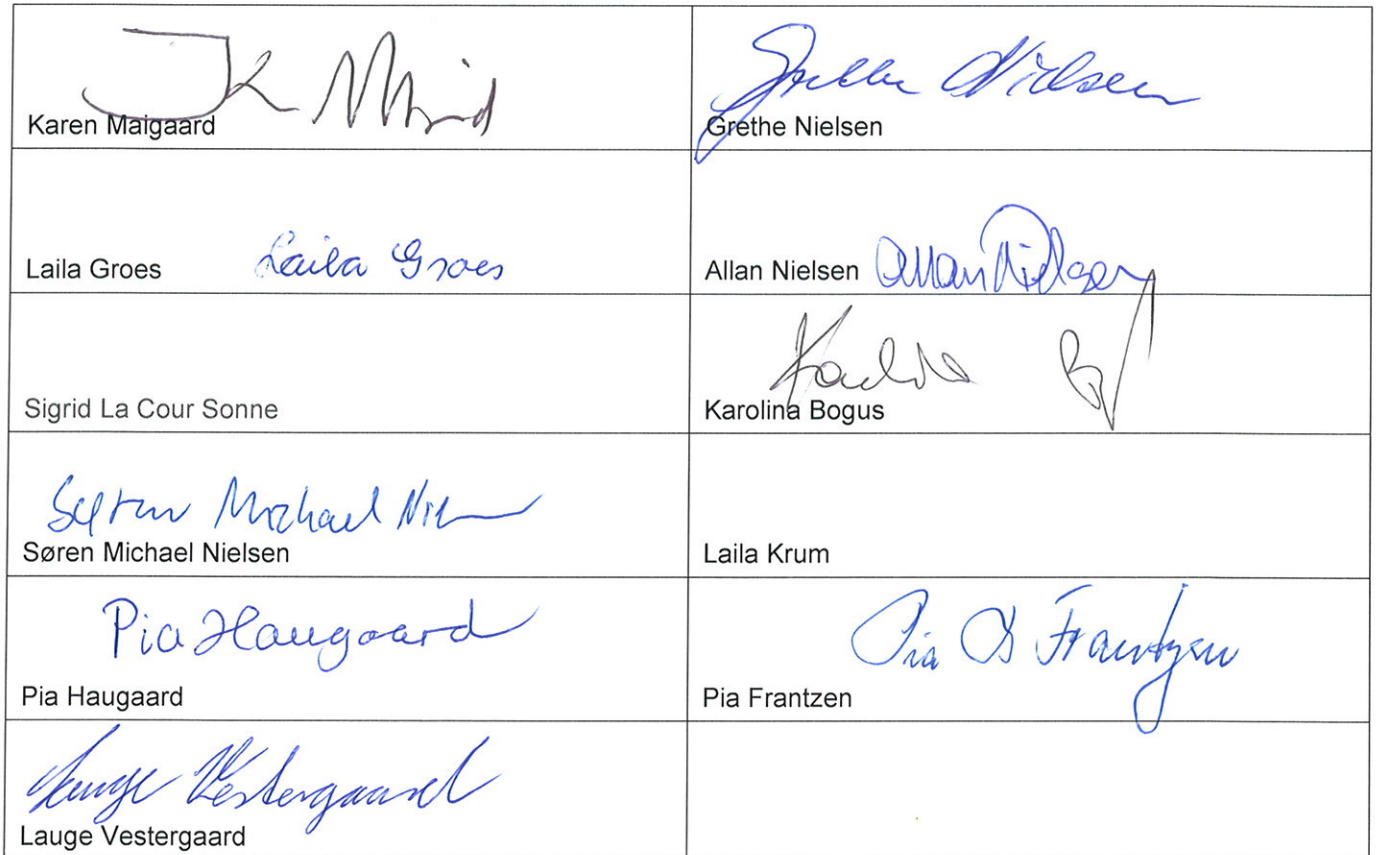 Karen Maigaard
Grethe Nielsen
Grethe Nielsen
Laila Groes Laila Groes
Allan Nielsen Allan Nielsen
Sigrid La Cour Sonne
Karolina Bogus
Michael
Søren Michael Nielsen
Laila Krum
Pia Haugaard
Pia Haugaard
Pia Frantzen
Pia Frantzen
Lauge Vestergaard
Lauge Vestergaard